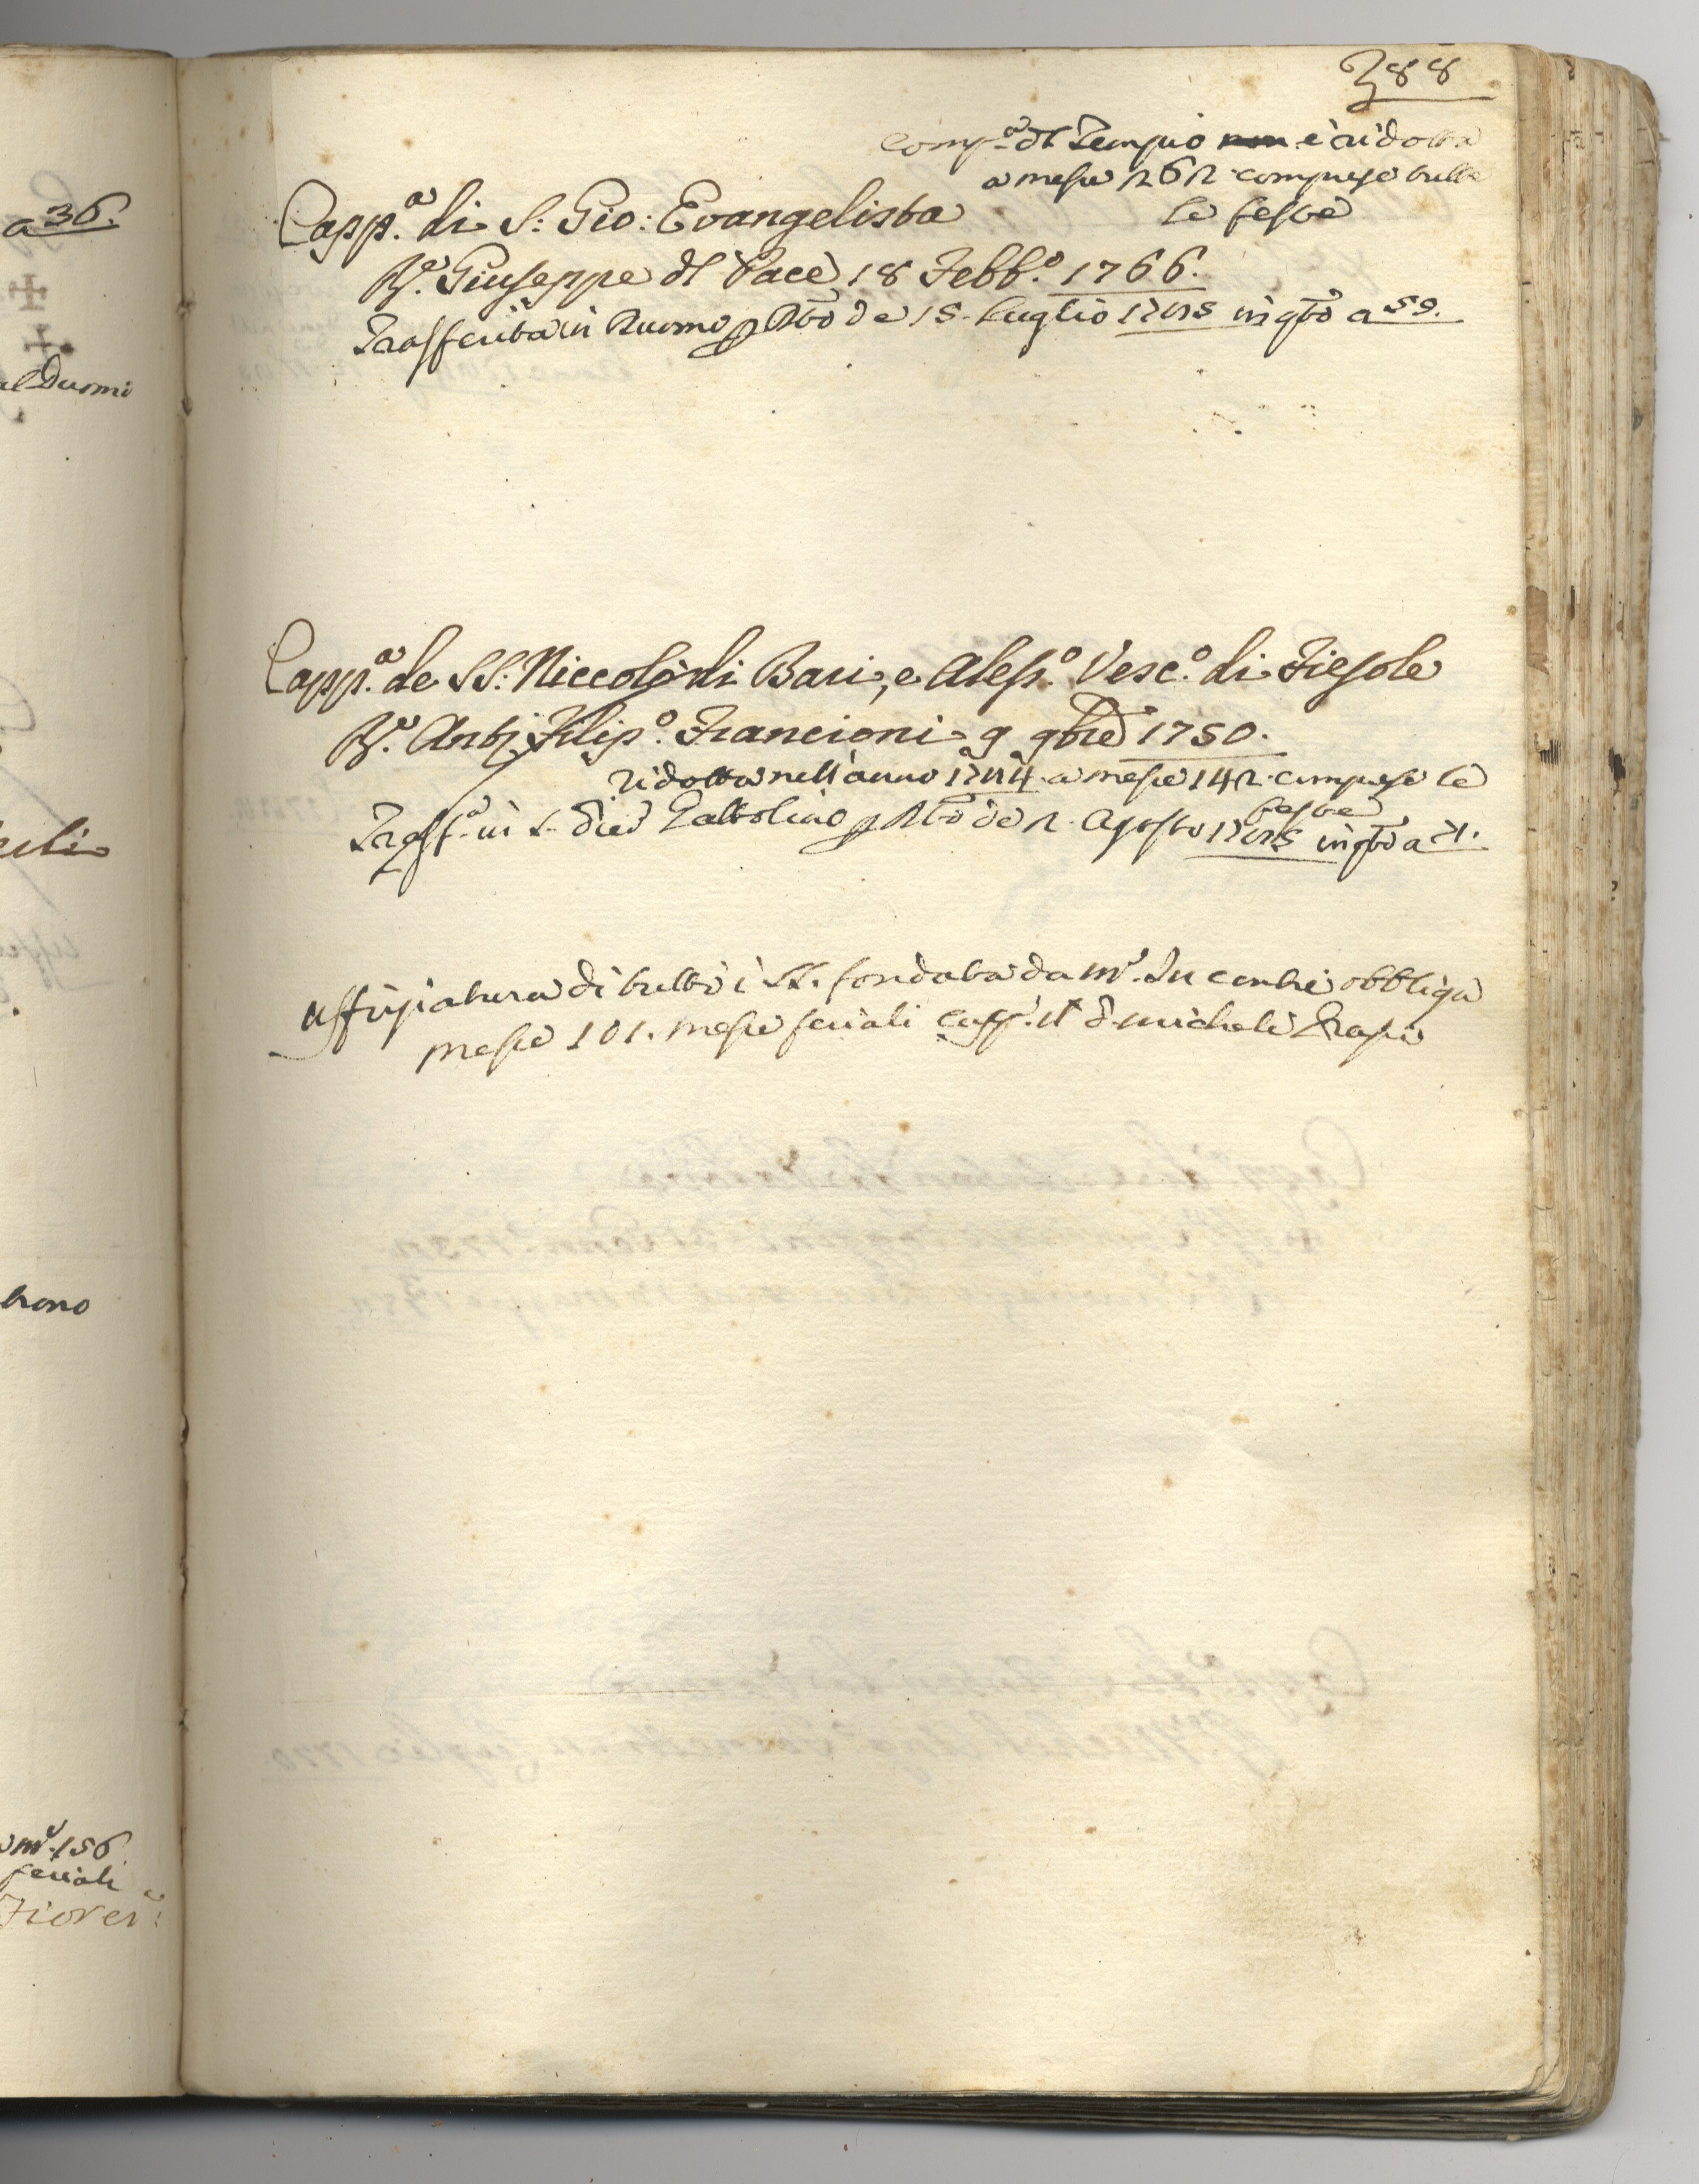 a 36.
al Duomo
hono
m.e 156
feriali
Fioren:
388
Comp.a dl Tempio non è ridotta
a messe 262 comprese tutte
le feste
Capp.a di S: Gio: Evangelista
R.e Giuseppe dl Pace 18 Febb.o 1766.
Trasferita in Duomo p Rto de 15 Luglio 1785 in qto a 59.
Capp.a de SS: Niccolò di Bari, e Aless.o Vesc.o di Fiesole
R.e Ant: Filip.o Francioni 9 9bre 1750.
ridotta nell'anno 1784 a messe 142 comprese le
feste
Trasf.a in S. Pier Gattolino p Rto de 2 Agosto 1785 in qto a 71.
Uffiziatura di tutti i SS. fondata da m.e Incontri obbliga
messe 101. messe feriali capp. il d. Michele